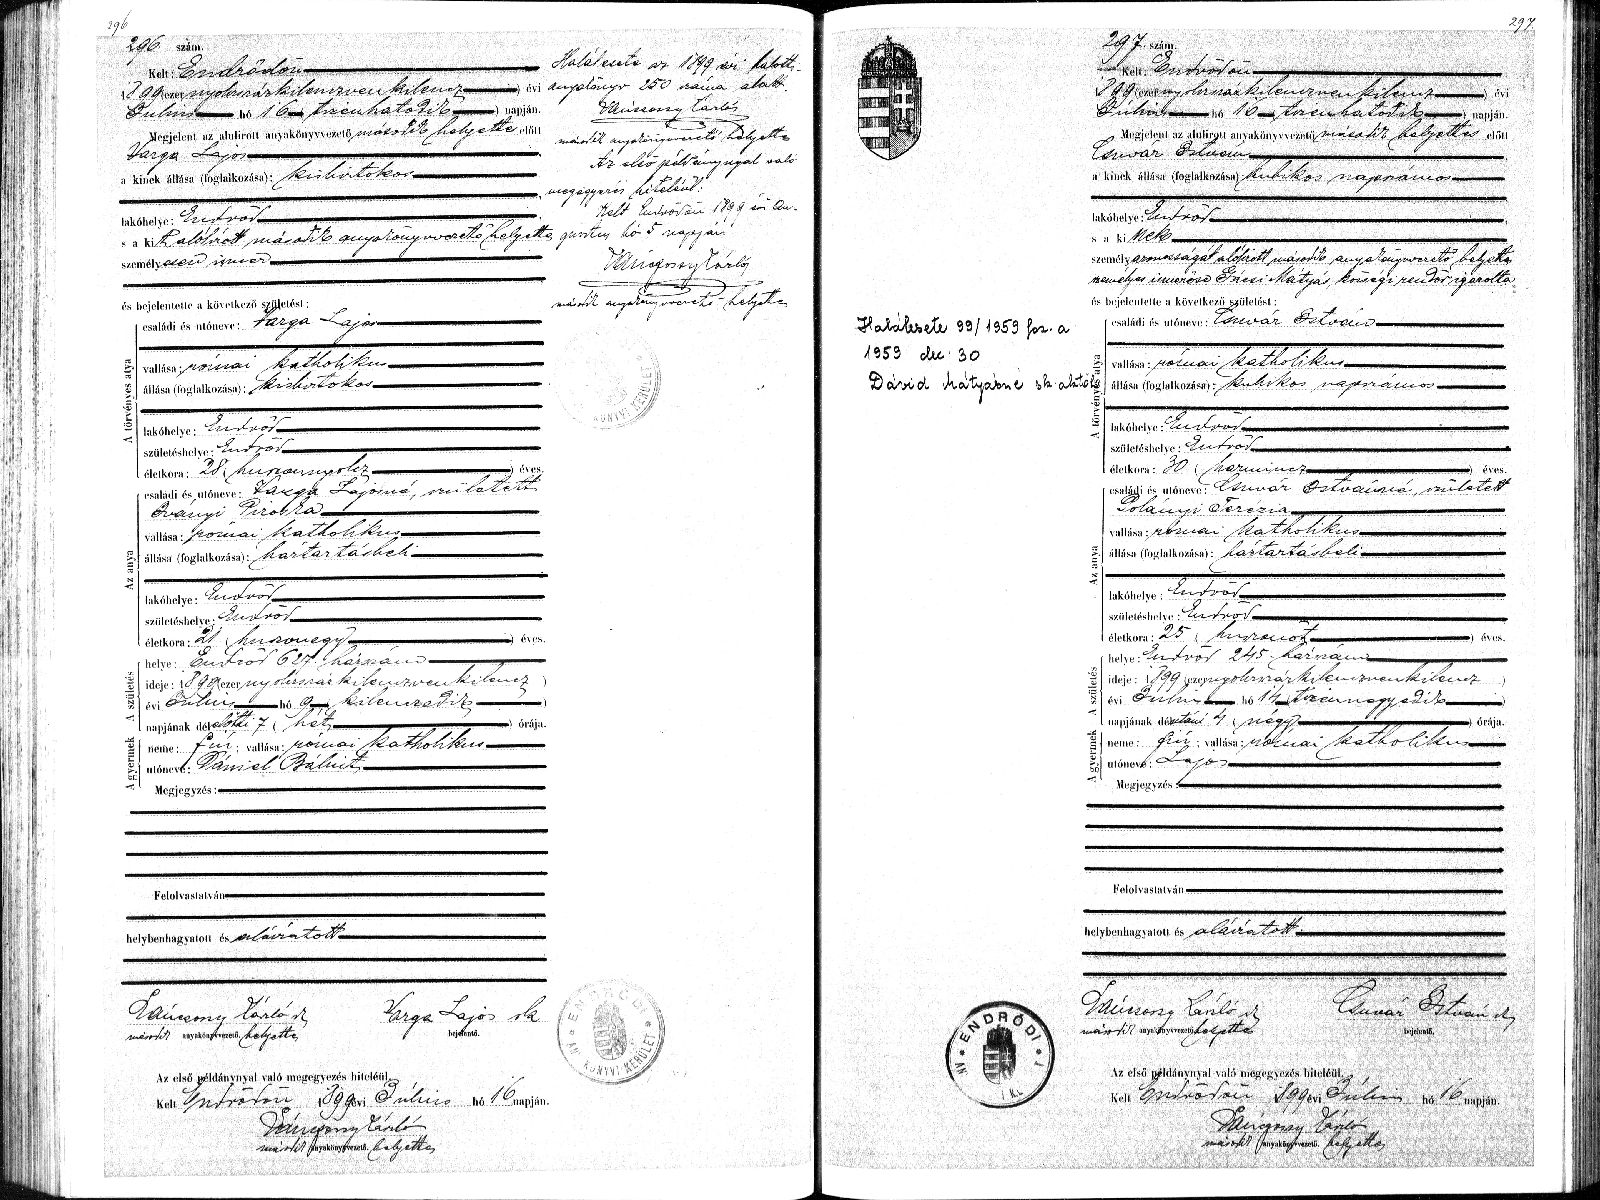 296
296 szám.
Kelt: Endrődön
1899 (ezernyolcszázkilenczvenkilencz) évi
Július hó 16 tizenhatodik napján.
Megjelent az alulirott anyakönyvvezető második helyettes előtt
Varga Lajos
a kinek állása (foglalkozása): kisbirtokos
lakóhelye: Endrőd
s a kit alólírott második anyakönyvvezető helyettes
személyesen ismer
és bejelentette a következő születést:
A törvényes atya
családi és utóneve: Varga Lajos
vallása: római katholikus
állása (foglalkozása): kisbirtokos
lakóhelye: Endrőd
születéshelye: Endrőd
életkora: 28 (huszonnyolcz) éves.
Az anya
családi és utóneve: Varga Lajosné, született
Iványi Piroska
vallása: római katholikus
állása (foglalkozása): háztartásbeli
lakóhelye: Endrőd
születéshelye: Endrőd
életkora: 21 (huszonegy) éves.
A születés
helye: Endrőd 627 házszám
ideje: 1899 (ezernyolcszázkilenczvenkilencz)
évi Július hó 9 kilenczedik
napjának délelőtti 7 (hét) órája.
A gyermek
neme: fiú; vallása: római katholikus
utóneve: Dániel Bálint
Megjegyzés:
Felolvastatván
helybenhagyatott és aláiratott
második anyakönyvvezető helyettes
Varga Lajos sk
bejelentő.
Az első példánynyal való megegyezés hiteléül.
Kelt Endrődön 1899 évi Július hó 16 napján.
második anyakönyvvezető helyettes
Halálesete az 1899 évi halotti
anyakönyv 250 száma alatt.
második anyakönyvvezető helyettes
Az első példánynyal való
megegyezés hiteléül:
Kelt Endrődön 1899 évi Au-
gusztus hó 5 napján
második anyakönyvvezető helyettes
KÖNYVI KERÜLET
ENDRŐDI
AN KÖNYVI KERÜLET
297
297 szám.
Kelt: Endrődön
1899 (ezernyolcszázkilenczvenkilencz) évi
Július hó 16 tizenhatodik napján.
Megjelent az alulirott anyakönyvvezető második helyettes előtt
Csuvár István
a kinek állása (foglalkozása) kubikos napszámos
lakóhelye: Endrőd
s a kinek
személyazonosságát alólírott második anyakönyvvezető helyettes
személyes ismerőse Mátyás, községi rendőr, igazolta
és bejelentette a következő születést:
A törvényes atya
családi és utóneve: Csuvár István
vallása: római katholikus
állása (foglalkozása): kubikos napszámos
lakóhelye: Endrőd
születéshelye: Endrőd
életkora: 30 (harmincz) éves.
Az anya
családi és utóneve: Csuvár Istvánné, született
Polányi Terézia
vallása: római katholikus
állása (foglalkozása): háztartásbeli
lakóhelye: Endrőd
születéshelye: Endrőd
életkora: 25 (huszonöt) éves.
A születés
helye: Endrőd 245 házszám
ideje: 1899 (ezernyolcszázkilenczvenkilencz)
évi Július hó 14 tizennegyedik
napjának délutáni 4 (négy) órája.
A gyermek
neme: fiú; vallása: római katholikus
utóneve: Lajos
Megjegyzés:
Felolvastatván
helybenhagyatott és aláiratott
második anyakönyvvezető helyettes
Csuvár István sk
bejelentő.
Az első példánynyal való megegyezés hiteléül.
Kelt Endrődön 1899 évi Július hó 16 napján.
második anyakönyvvezető helyettes
Halálesete 99/1953 fsz. a
1953 dec 30
Dávid Mátyásné sk aktók
ENDRŐDI
AN